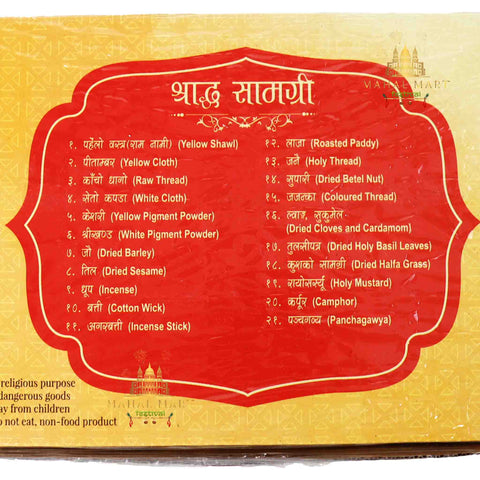 MAHAL MART
festival
श्राद्ध सामग्री
१. पहेँलो वस्त्र(राम नामी) (Yellow Shawl)
२. पीताम्बर (Yellow Cloth)
३. काँचो धागो (Raw Thread)
४. सेतो कपडा (White Cloth)
५. केशरी (Yellow Pigment Powder)
६. श्रीखण्ड (White Pigment Powder)
७. जौ (Dried Barley)
८. तिल (Dried Sesame)
९. धूप (Incense)
१०. बत्ती (Cotton Wick)
११. अगरबत्ती (Incense Stick)
१२. लाजा (Roasted Paddy)
१३. जनै (Holy Thread)
१४. सुपारी (Dried Betel Nut)
१५. जजन्का (Coloured Thread)
१६. ल्वाङ, सुकुमेल
(Dried Cloves and Cardamom)
१७. तुलसीपत्र (Dried Holy Basil Leaves)
१८. कुशको सामग्री (Dried Halfa Grass)
१९. रायोसर्स्यू (Holy Mustard)
२०. कर्पूर (Camphor)
२१. पञ्चगव्य (Panchagawya)
religious purpose
dangerous goods
ay from children
o not eat, non-food product
MAHAL MART
festival